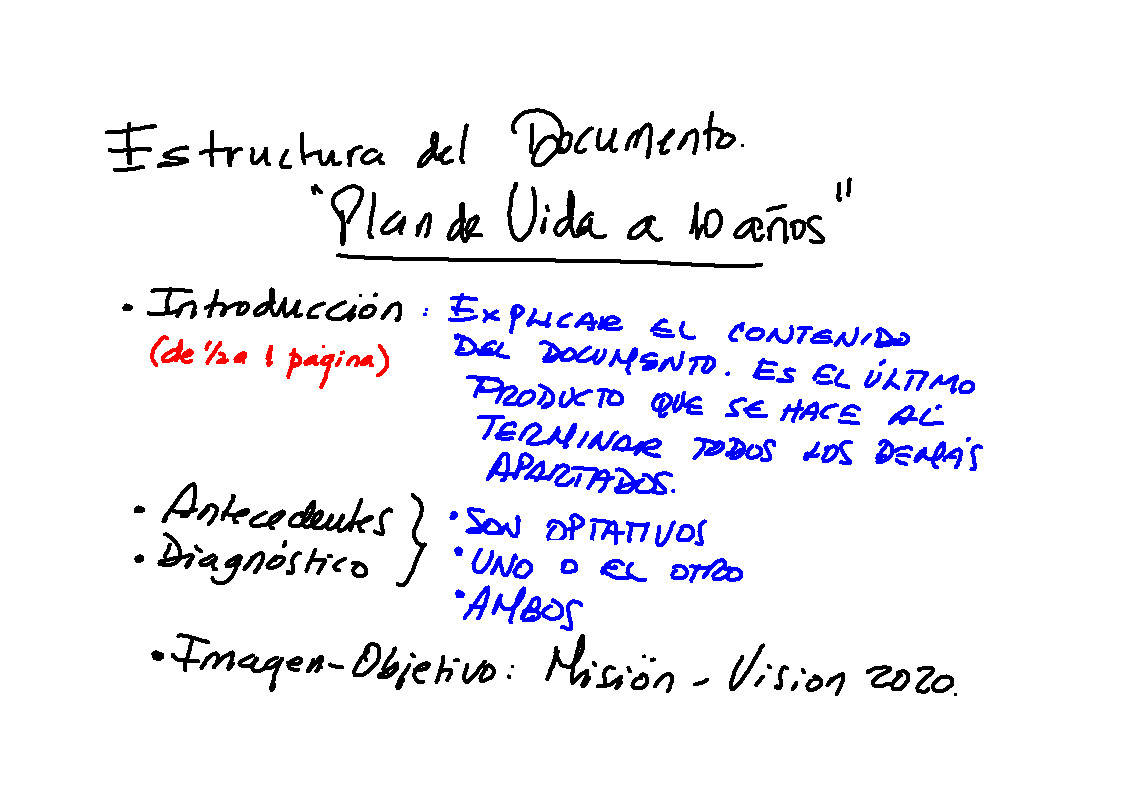 Estructura del Documento.
"Plan de Vida a 10 años"
• Introducción : EXPLICAR EL CONTENIDO
(de ½ a 1 página) DEL DOCUMENTO. ES EL ÚLTIMO
PRODUCTO QUE SE HACE AL
TERMINAR TODOS LOS DEMÁS
APARTADOS.
• Antecedentes } • SON OPTATIVOS
• Diagnóstico • UNO O EL OTRO
• AMBOS
• Imagen-Objetivo: Misión - Vision 2020.